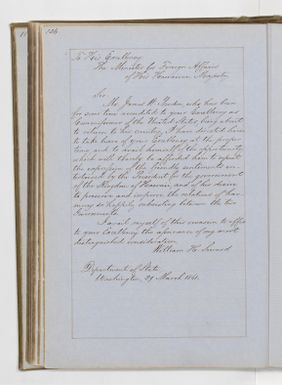 126
To His Excellency
The Minister for Foreign Affairs
of His Hawaiian Majesty
Sir:
Mr. James W. Borden, who has been
for some time accredited to your Excellency as
Commissioner of the United States being about
to return to his country, I have directed him
to take leave of your Excellency at the proper
time and to avail himself of the opportunity
which will thereby be afforded him to repeat
the expression of the friendly sentiments en-
tertained by the President for the government
of the Kingdom of Hawaii, and of his desire
to preserve and improve the relations of har-
mony so happily subsisting between the two
Governments.
I avail myself of this occasion to offer
to your Excellency the assurance of my most
distinguished consideration.
William H. Seward
Department of State
Washington, 29 March 1861.